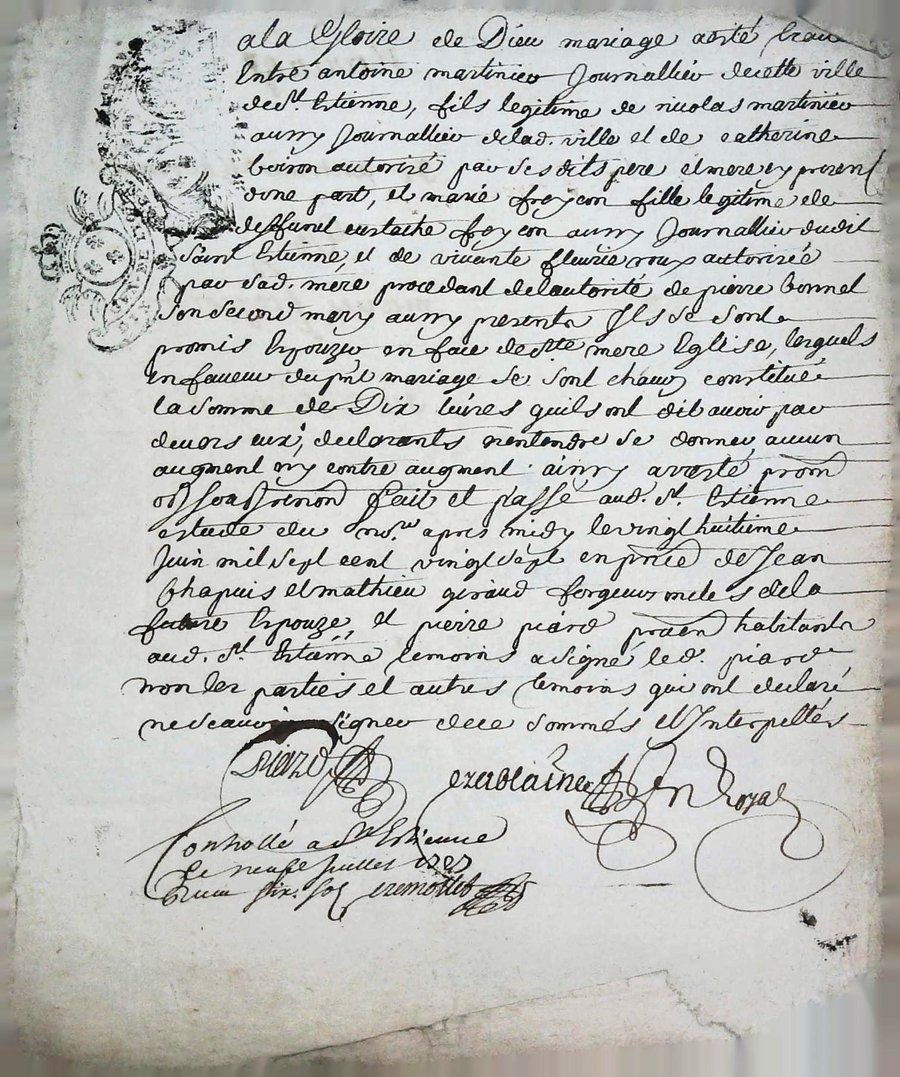 a la Gloire de Dieu mariage a esté
Entre antoine martinier Journallier de cette ville
de St Estienne, fils legitime de nicolas martinier
aussy Journallier de lad. ville et de catherine
boiron autorizé par sesdits pere et mere cy presents
d'une part, et marie freycon fille legitime de
deffunct eustache freycon aussy Journallier dudit
Saint Estienne, et de vivante fleurie roux autorizée
par sad. mere procedant de l'autorité de pierre bonnet
son second mary aussy presents Ils se sont
promis Epouzer en face de Ste mere Eglise, lesquels
En faveur du pnt mariage se sont chacun constitué
la somme de Dix livres quils ont dit avoir par
devers eux, declarants n'entendre se donner aucun
augment ny contre augment ainsy arresté prom
obl soub renon Fait et passé aud. St Estienne
estude du nore apres midy le vingt huitieme
Juin mil sept cent vingt sept en pnce de Jean
Chapuis et mathieu giraud forgeurs de la
future Epouze, et pierre piard pnten habitants
aud. St Estienne temoins a signé led. piard
non les parties et autres temoins qui ont declaré
ne scavoir signer de ce sommés et Interpellés
piard
Nre Royal
Controllé a St Estienne
le neufe Juillet 1727